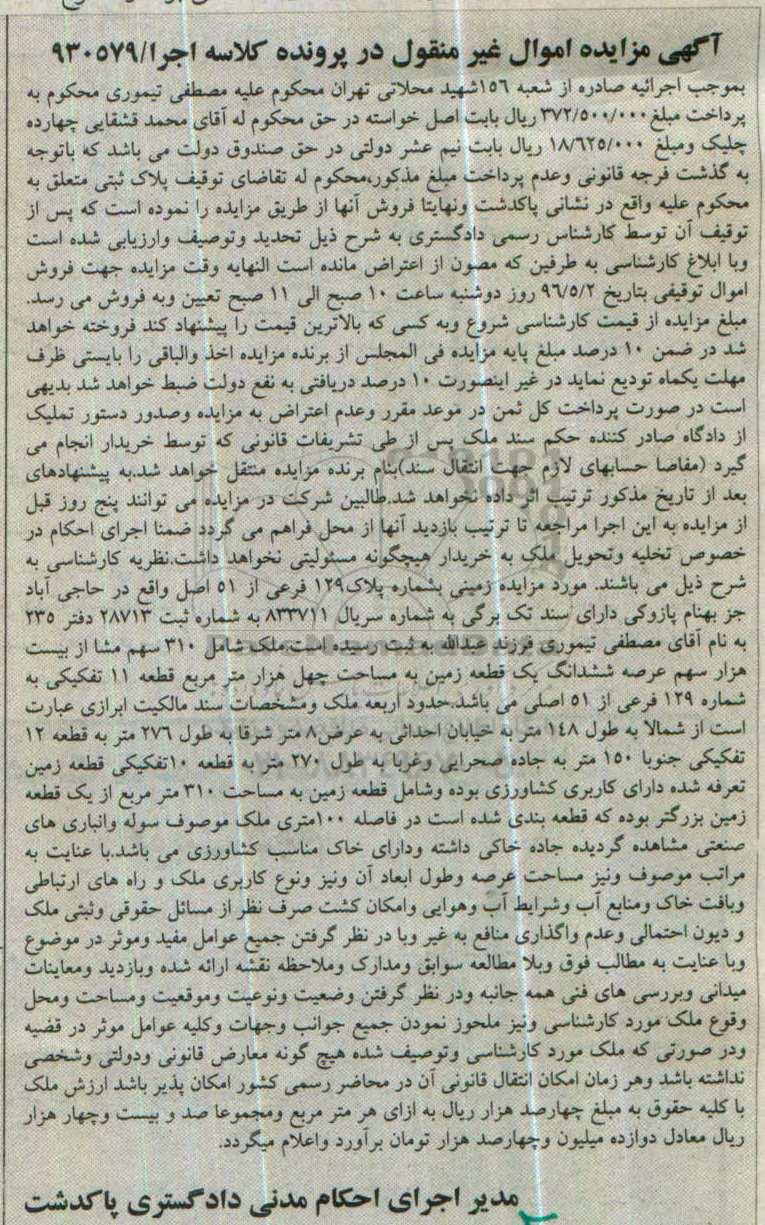 آگهی مزایده اموال غیر منقول در پرونده کلاسه اجرا/۹۳۰۵۷۹
بموجب اجرائیه صادره از شعبه ۱۵٦شهید محلاتی تهران محکوم علیه مصطفی تیموری محکوم به
پرداخت مبلغ ۳۷۲/۵۰۰/۰۰۰ ریال بابت اصل خواسته در حق محکوم له آقای محمد قشقایی چهارده
چلیک ومبلغ ۱۸/٦۲۵/۰۰۰ ریال بابت نیم عشر دولتی در حق صندوق دولت می باشد که باتوجه
به گذشت فرجه قانونی وعدم پرداخت مبلغ مذکور،محکوم له تقاضای توقیف پلاک ثبتی متعلق به
محکوم علیه واقع در نشانی پاکدشت ونهایتا فروش آنها از طریق مزایده را نموده است که پس از
توقیف آن توسط کارشناس رسمی دادگستری به شرح ذیل تحدید وتوصیف وارزیابی شده است
وبا ابلاغ کارشناسی به طرفین که مصون از اعتراض مانده است النهایه وقت مزایده جهت فروش
اموال توقیفی بتاریخ ۹٦/۵/۲ روز دوشنبه ساعت ۱۰ صبح الی ۱۱ صبح تعیین وبه فروش می رسد.
مبلغ مزایده از قیمت کارشناسی شروع وبه کسی که بالاترین قیمت را پیشنهاد کند فروخته خواهد
شد در ضمن ۱۰ درصد مبلغ پایه مزایده فی المجلس از برنده مزایده اخذ والباقی را بایستی ظرف
مهلت یکماه تودیع نماید در غیر اینصورت ۱۰ درصد دریافتی به نفع دولت ضبط خواهد شد بدیهی
است در صورت پرداخت کل ثمن در موعد مقرر وعدم اعتراض به مزایده وصدور دستور تملیک
از دادگاه صادر کننده حکم سند ملک پس از طی تشریفات قانونی که توسط خریدار انجام می
گیرد (مفاصا حسابهای لازم جهت انتقال سند)بنام برنده مزایده منتقل خواهد شد.به پیشنهادهای
بعد از تاریخ مذکور ترتیب اثر داده نخواهد شد.طالبین شرکت در مزایده می توانند پنج روز قبل
از مزایده به این اجرا مراجعه تا ترتیب بازدید آنها از محل فراهم می گردد ضمنا اجرای احکام در
خصوص تخلیه وتحویل ملک به خریدار هیچگونه مسئولیتی نخواهد داشت.نظریه کارشناسی به
شرح ذیل می باشند. مورد مزایده زمینی بشماره پلاک۱۲۹ فرعی از ۵۱ اصل واقع در حاجی آباد
جز بهنام پازوکی دارای سند تک برگی به شماره سریال ۸۳۳۷۱۱ به شماره ثبت ۲۸۷۱۳ دفتر ۲۳۵
به نام آقای مصطفی تیموری فرزند عبدالله به ثبت رسیده است.ملک شامل ۳۱۰ سهم مشا از بیست
هزار سهم عرصه ششدانگ یک قطعه زمین به مساحت چهل هزار متر مربع قطعه ۱۱ تفکیکی به
شماره ۱۲۹ فرعی از ۵۱ اصلی می باشد.حدود اربعه ملک ومشخصات سند مالکیت ابرازی عبارت
است از شمالا به طول ۱٤۸ متر به خیابان احداثی به عرض۸ متر شرقا به طول ۲۷٦ متر به قطعه ۱۲
تفکیکی جنوبا ۱۵۰ متر به جاده صحرایی وغربا به طول ۲۷۰ متر به قطعه ۱۰تفکیکی قطعه زمین
تعرفه شده دارای کاربری کشاورزی بوده وشامل قطعه زمین به مساحت ۳۱۰ متر مربع از یک قطعه
زمین بزرگتر بوده که قطعه بندی شده است در فاصله ۱۰۰متری ملک موصوف سوله وانباری های
صنعتی مشاهده گردیده جاده خاکی داشته ودارای خاک مناسب کشاورزی می باشد.با عنایت به
مراتب موصوف ونیز مساحت عرصه وطول ابعاد آن ونیز ونوع کاربری ملک و راه های ارتباطی
وبافت خاک ومنابع آب وشرایط آب وهوایی وامکان کشت صرف نظر از مسائل حقوقی وثبتی ملک
و دیون احتمالی وعدم واگذاری منافع به غیر وبا در نظر گرفتن جمیع عوامل مفید وموثر در موضوع
وبا عنایت به مطالب فوق وبلا مطالعه سوابق ومدارک وملاحظه نقشه ارائه شده وبازدید ومعاینات
میدانی وبررسی های فنی همه جانبه ودر نظر گرفتن وضعیت ونوعیت وموقعیت ومساحت ومحل
وقوع ملک مورد کارشناسی ونیز ملحوز نمودن جمیع جوانب وجهات وکلیه عوامل موثر در قضیه
ودر صورتی که ملک مورد کارشناسی وتوصیف شده هیچ گونه معارض قانونی ودولتی وشخصی
نداشته باشد وهر زمان امکان انتقال قانونی آن در محاضر رسمی کشور امکان پذیر باشد ارزش ملک
با کلیه حقوق به مبلغ چهارصد هزار ریال به ازای هر متر مربع ومجموعا صد و بیست وچهار هزار
ریال معادل دوازده میلیون وچهارصد هزار تومان برآورد واعلام میگردد.
مدیر اجرای احکام مدنی دادگستری پاکدشت